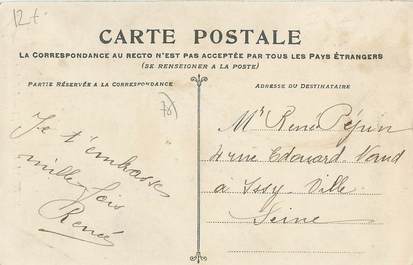 12 t
CARTE POSTALE
LA CORRESPONDANCE AU RECTO N'EST PAS ACCEPTÉE PAR TOUS LES PAYS ÉTRANGERS
(SE RENSEIGNER A LA POSTE)
PARTIE RÉSERVÉE A LA CORRESPONDANCE
ADRESSE DU DESTINATAIRE
Je t'embrasse
mille fois
Renée
Mr René Pépin
4 rue Edouard Naud
à Issy. Ville
Seine